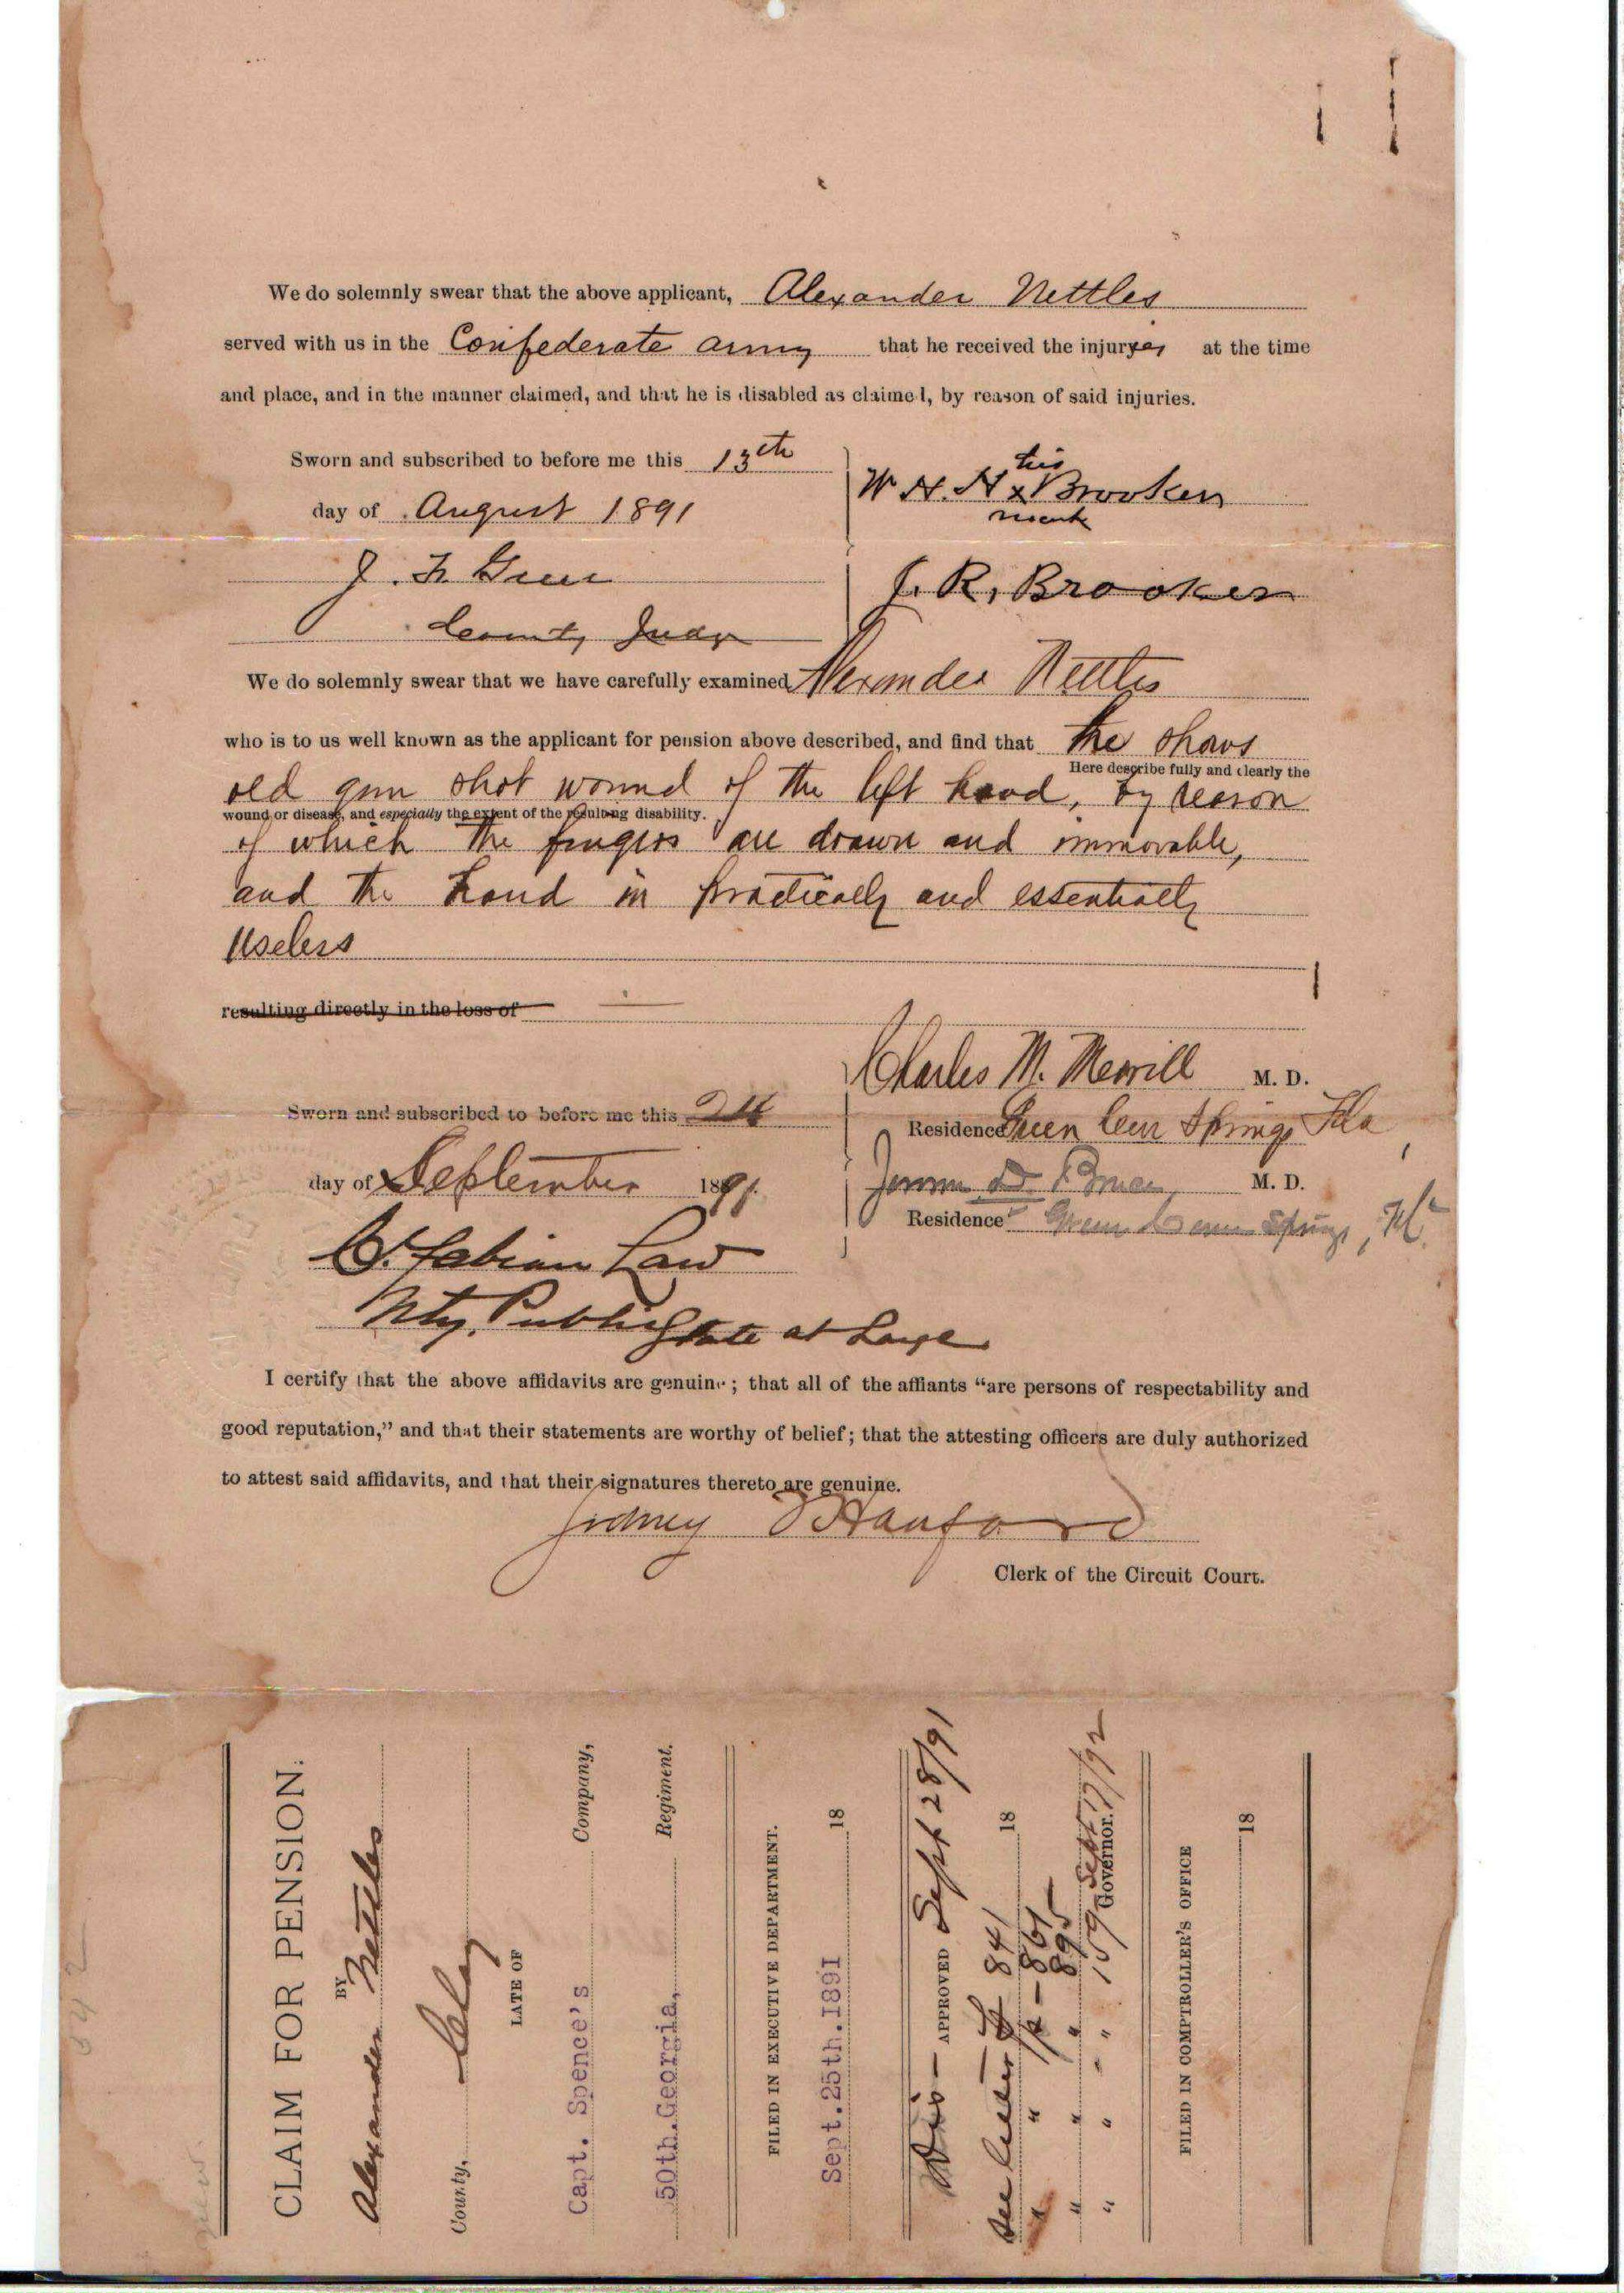 We do solemnly swear that the above applicant, Alexander Nettles
served with us in the Confederate army that he received the injuryes at the time
and place, and in the manner claimed, and that he is disabled as claimed, by reason of said injuries.
Sworn and subscribed to before me this 13th
day of August 1891
his
W H. H x Brooker
mark
J. R. Brooker
County Judge
We do solemnly swear that we have carefully examined Alexander Nettles
who is to us well known as the applicant for pension above described, and find that he shows
Here describe fully and clearly the
old gun shot wound of the left hand, by reason
wound or disease, and especially the extent of the resulting disability.
of which the fingers are drawn and immovable,
and the hand is practically and essentially
useless
resulting directly in the loss of
Charles M. Merrill M. D.
Sworn and subscribed to before me this
Residence Green Cove Springs Fla
day of September 1891.
M. D.
Residence Green Cove Springs, Fl
C. Fabian Law
Nty. Public State at Large
I certify that the above affidavits are genuine; that all of the affiants “are persons of respectability and
good reputation,” and that their statements are worthy of belief; that the attesting officers are duly authorized
to attest said affidavits, and that their signatures thereto are genuine.
Sidney Hanford
Clerk of the Circuit Court.
CLAIM FOR PENSION.
BY
Alexander Nettles
County, Clay
LATE OF
Capt. Spence's Company,
50th. Georgia, Regiment.
FILED IN EXECUTIVE DEPARTMENT.
Sept. 25th. 1891 18
Dis- APPROVED Sept 28/91
see Letter 841 18
" " - 861
" " " 895
" " - " 159 Sept 17/92
Governor.
FILED IN COMPTROLLER'S OFFICE
18